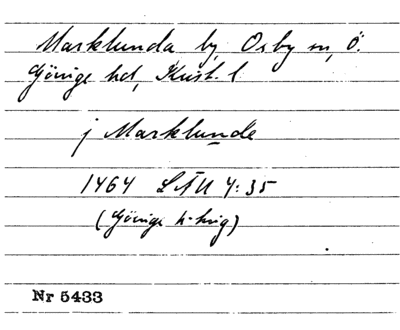 Marklunda by, Osby sn, Ö.
Göinge hd, Krist. l
j Marklunde
1464 LÄU 4:35
(Göinge h-hrig)
Nr 5433